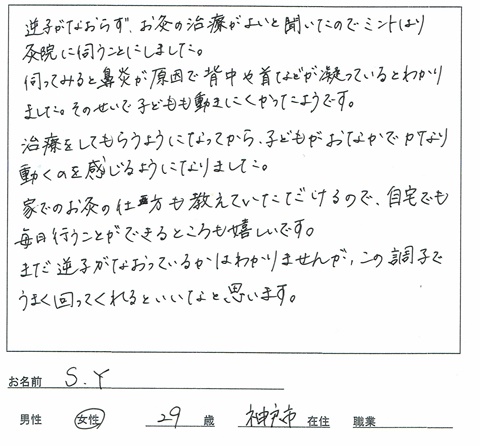 逆子がなおらず、お灸の治療がよいと聞いたのでミントはり
灸院に伺うことにしました。
伺ってみると鼻炎が原因で背中や首などが凝っているとわかり
ました。そのせいで子どもも動きにくかったようです。
治療をしてもらうようになってから、子どもがおなかでかなり
動くのを感じるようになりました。
家でのお灸の仕方も教えていただけるので、自宅でも
毎日行うことができるところも嬉しいです。
まだ逆子がなおっているかはわかりませんが、この調子で
うまく回ってくれるといいなと思います。
お名前 S.Y
男性 女性 29 歳 神戸市 在住 職業